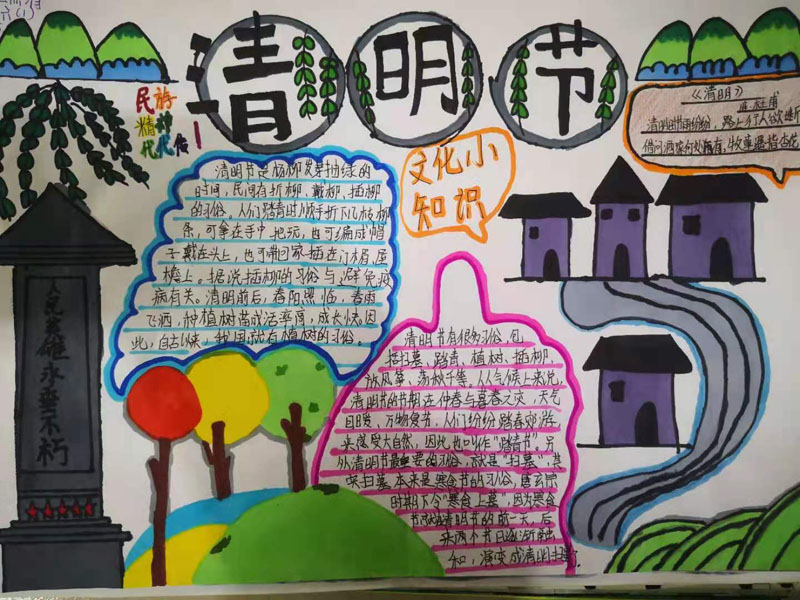 清明节
民族
精神
代代传
《清明》
唐 杜甫
清明时节雨纷纷,路上行人欲断
借问酒家何处有,牧童遥指杏花
文化小
知识
清明节是杨柳发芽抽绿的
时间,民间有折柳、戴柳、插柳
的习俗。人们踏青时顺手折下几枝柳
条,可拿在手中把玩,也可编成帽
子戴在头上,也可带回家插在门楣、屋
檐上。据说插柳的习俗与避免疫
病有关。清明前后,春阳照临,春雨
飞洒,种植树苗成活率高,成长快。因
此,自古以来,我国就有植树的习俗。
清明节有很多习俗,包
括扫墓、踏青、植树、插柳、
放风筝、荡秋千等。从气候上来说,
清明节的节期在仲春与暮春之交,天气
回暖、万物复苏,人们纷纷踏春郊游,
来感受大自然,因此也叫作“踏青节”。另
外清明节最重要的习俗,就是“扫墓”,其
实扫墓本来是寒食节的习俗,唐玄宗
时期下令“寒食上墓”,因为寒食
节在清明节的前一天,后
来两个节日逐渐融
和,演变成清明扫墓。
人民英雄永垂不朽